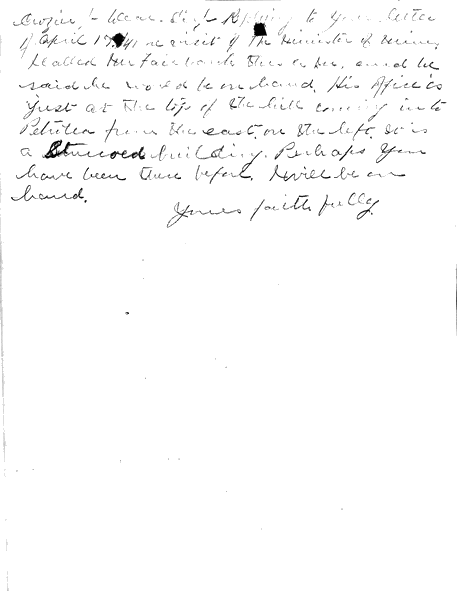 Dear Sir:- Replying to your letter
of April 17 re visit of the Minister of Mines,
I called Mr Fairbank this a.m. and he
said he would be on hand. His Office is
just at the top of the hill coming into
Petrolea from the east, on the left. It is
a building. Perhaps you
have been there before. I will be on
hand.
Yours faithfully